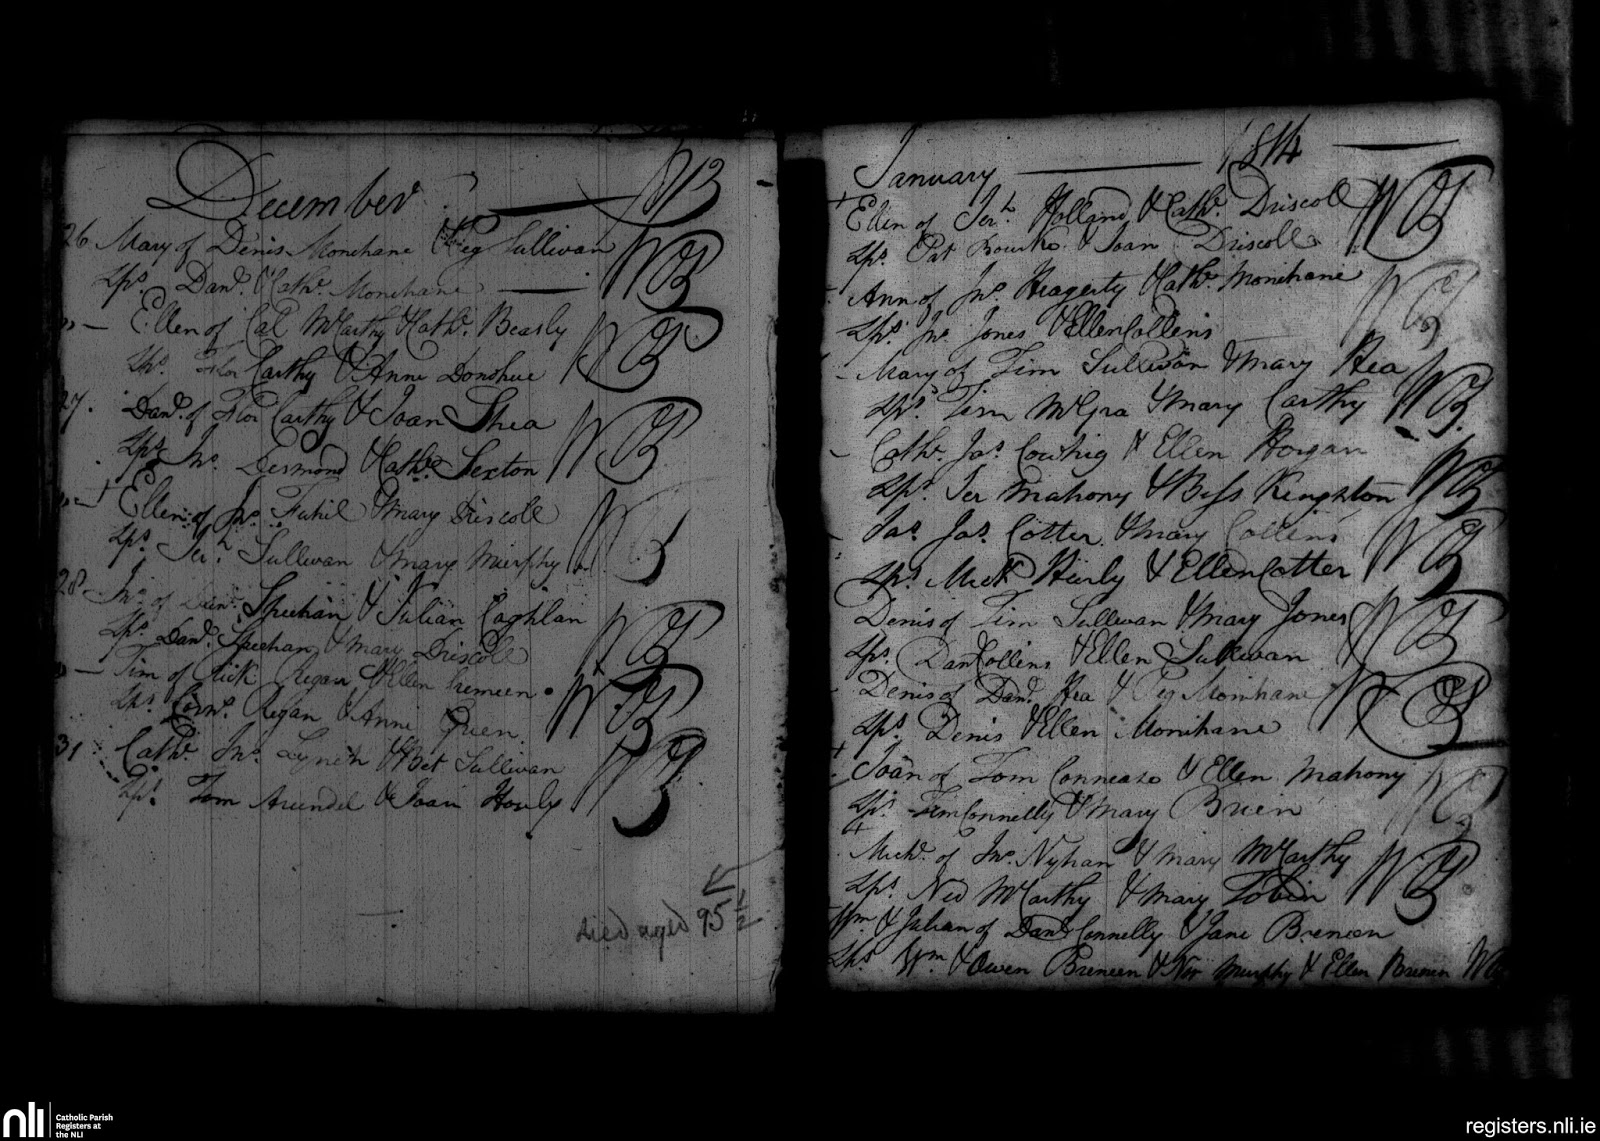 December 1813
26 Mary of Denis Monehane & Peg Sullivan
Sps. Danl. & Cathe. Monehane
Ellen of Cal McCarthy & Cathe. Beasly
Sps. Flor Carthy & Anne Donohue
27. Danl. of Flor Carthy & Joan Shea
Sps. Jno. Desmond & Cathe. Sexton
Ellen of Jno. Fuhil & Mary Driscoll
Sps. Jerh. Sullivan & Mary Murphy
28 Jno. of Danl. Sheehan & Julian Caghlan
Sps. Danl. Sheehan & Mary Driscoll
Tim of Rick Regan & Ellen
Sps. Corns. Regan & Anne Green
31 Cathe. Jno. Lynch & Bet Sullivan
Sps. Tom Arundel & Joan Hourly
died aged 95 1/2
January 1814
Ellen of Jerh. Holland & Cathe. Driscoll
Sps. Pat Rourke & Joan Driscoll
Ann of Jno. Heagerty & Cathe. Monihane
Sps. Jno. Jones & Ellen Collins
Mary of Tim Sullivan & Mary Hea
Sps. Tim McGra & Mary Carthy
Cathe. Jas. Cowhig & Ellen Horgan
Sps. Jer Mahony & Bess Kingston
Jas. Jas. Cotter & Mary Collins
Sps. Mick Hurly & Ellen Cotter
Denis of Tim Sullivan & Mary Jones
Sps. Dan Collins & Ellen Sullivan
Denis of Danl. Hea & Peg Monihane
Sps. Denis & Ellen Monihane
Joan of Tom & Ellen Mahony
Sps. Tim Connelly & Mary Brien
Michl. of Jno. Nyhan & Mary McCarthy
Sps. Ned McCarthy & Mary Tobin
Wm & Julian of Danl. Connelly & Jane Breneen
Sps. Wm & Owen Breneen & Nor Murphy & Ellen Breneen
nli Catholic Parish
Registers at
the NLI
registers.nli.ie